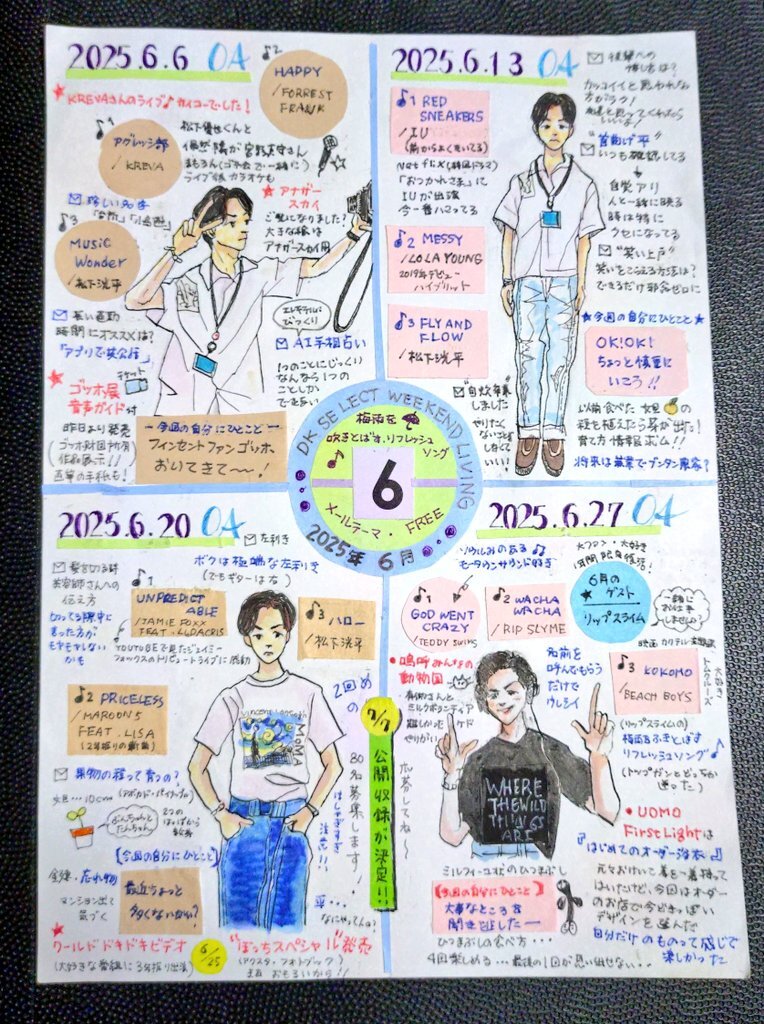 2025.6.6 04
★KREVAさんのライブ♪サイコーでした!
♪2
HAPPY
/FORREST
FRANK
♪1
アグレッシ部
/KREVA
松下優也くんと
ライブ後カラオケも
★アナザー
スカイ
ご覧になりました?
大きな祿は
アナザースカイ用
珍しい名字
♪3
MUSIC
WONDER
/松下洸平
長い通勤
時間にオススメは?
「アプリで英会話」
びっくり
AI手相占い
1つのことにじっくり
なんなら1つの
ことしか
できない
★ゴッホ展
音声ガイド
チケット
昨日より発売
作品展示!!
直筆の手紙も!
ー今回の自分にひとことー
フィンセントファンゴッホ
おいてきて〜〜!
2025.6.13 04
後輩への
接し方は?
カッコイイと思われない
方がラク!
♪1 RED
SNEAKERS
/IU
(前からよくきいてる)
Netflix(韓国ドラマ)
「おつかれさま」に
IUが出演
今一番ハマってる
"首曲げ平"
いつも確認してる
自覚アリ
人と一緒に映る
時は特に
クセになってる
♪2 MESSY
/LOLA YOUNG
2019年デビュー
ハイブリット
"笑い上戸"
笑いをこらえる方法は?
できるだけ邪念ゼロに
♪3 FLY AND
FLOW
/松下洸平
★今回の自分にひとこと★
OK!OK!
ちょっと慎重に
いこう!!
"自炊卒業"
しました
やりたく
ないこと
しなくて
いい!
以前食べた文旦の
種を植えたら芽が出た!
育て方情報求ム!!
将来は兼業でブンタン農家?
DK SELECT WEEKEND LIVING
梅雨を
吹きとばす.リフレッシュ
ソング
6
メールテーマ・FREE
2025年6月
2025.6.20 04
左利き
ボクは極端な左利き
(でもギターは右)
髪を切る時
美容師さんへの
伝え方
切ってる際中に
言った方が
モヤモヤしない
かも
♪1
UNPREDICT
ABLE
/JAMIE FOXX
FEAT.LUDACRIS
YOUTUBEで見たジェイミー
フォックスのトリビュートライブに感動
♪3 ハロー
/松下洸平
♪2 PRICELESS
/MAROON5
FEAT.LISA
(2年振りの新曲)
果物の種って育つの?
(アボカド・パイナップル)
文旦…10cm
ぶんちゃんと
たんちゃん
2つの
【今回の自分にひとこと】
最近ちょっと
多くないかい?
忘れ物
マンション出て
気づく
★
ワールドドキドキビデオ
6/25
"ぼっちスペシャル"発売
(大好きな番組に3年振り出演)
(アクスタ・フォトブック)
Vincent van Gogh
MoMA
2回めの
7/7
公開収録が決定!!
80名募集します!
応募してね〜
はしゃぎすぎ
注意!!
なにやってんの?
2025.6.27 04
ソウルみのある♪
モータウンサウンド好き
6月の
ゲスト
リップスライム
一緒に
お仕事
しません?
♪1
GOD WENT
CRAZY
/TEDDY SWIMS
♪2 WACHA
WACHA
/RIP SLYME
●嗚呼みんなの
動物園
やりがい
名前を
呼んでもらう
だけで
ウレシイ
♪3 KOKOMO
/BEACH BOYS
トム・クルーズ
大好き
(リップスライムの)
梅雨をふきとばす
リフレッシュソング♪
(トップガンとどっちか
迷った)
WHERE
THE WILD
THINGS
ARE
●UOMO
First Lightは
『はじめてのオーダー浴衣』
はいたけど、今回はオーダー
のお店で今どきっぽい
デザインを選んだ
自分だけのものって感じで
楽しかった
【今回の自分にひとこと】
大事なところを
聞き逃したー
ひつまぶしの食べ方…
4回楽しめる…最後の1回が思い出せない…